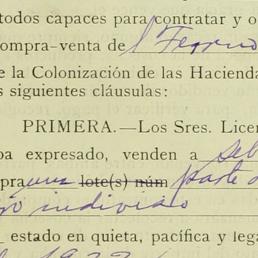 todos capaces para contratar y o
compra-venta de l Terreno
e la Colonización de las Hacienda
s siguientes cláusulas:
PRIMERA.—Los Sres. Licen
ba expresado, venden a Seb
pra una lote(s) núm parte d
indiviso
estado en quieta, pacífica y lega